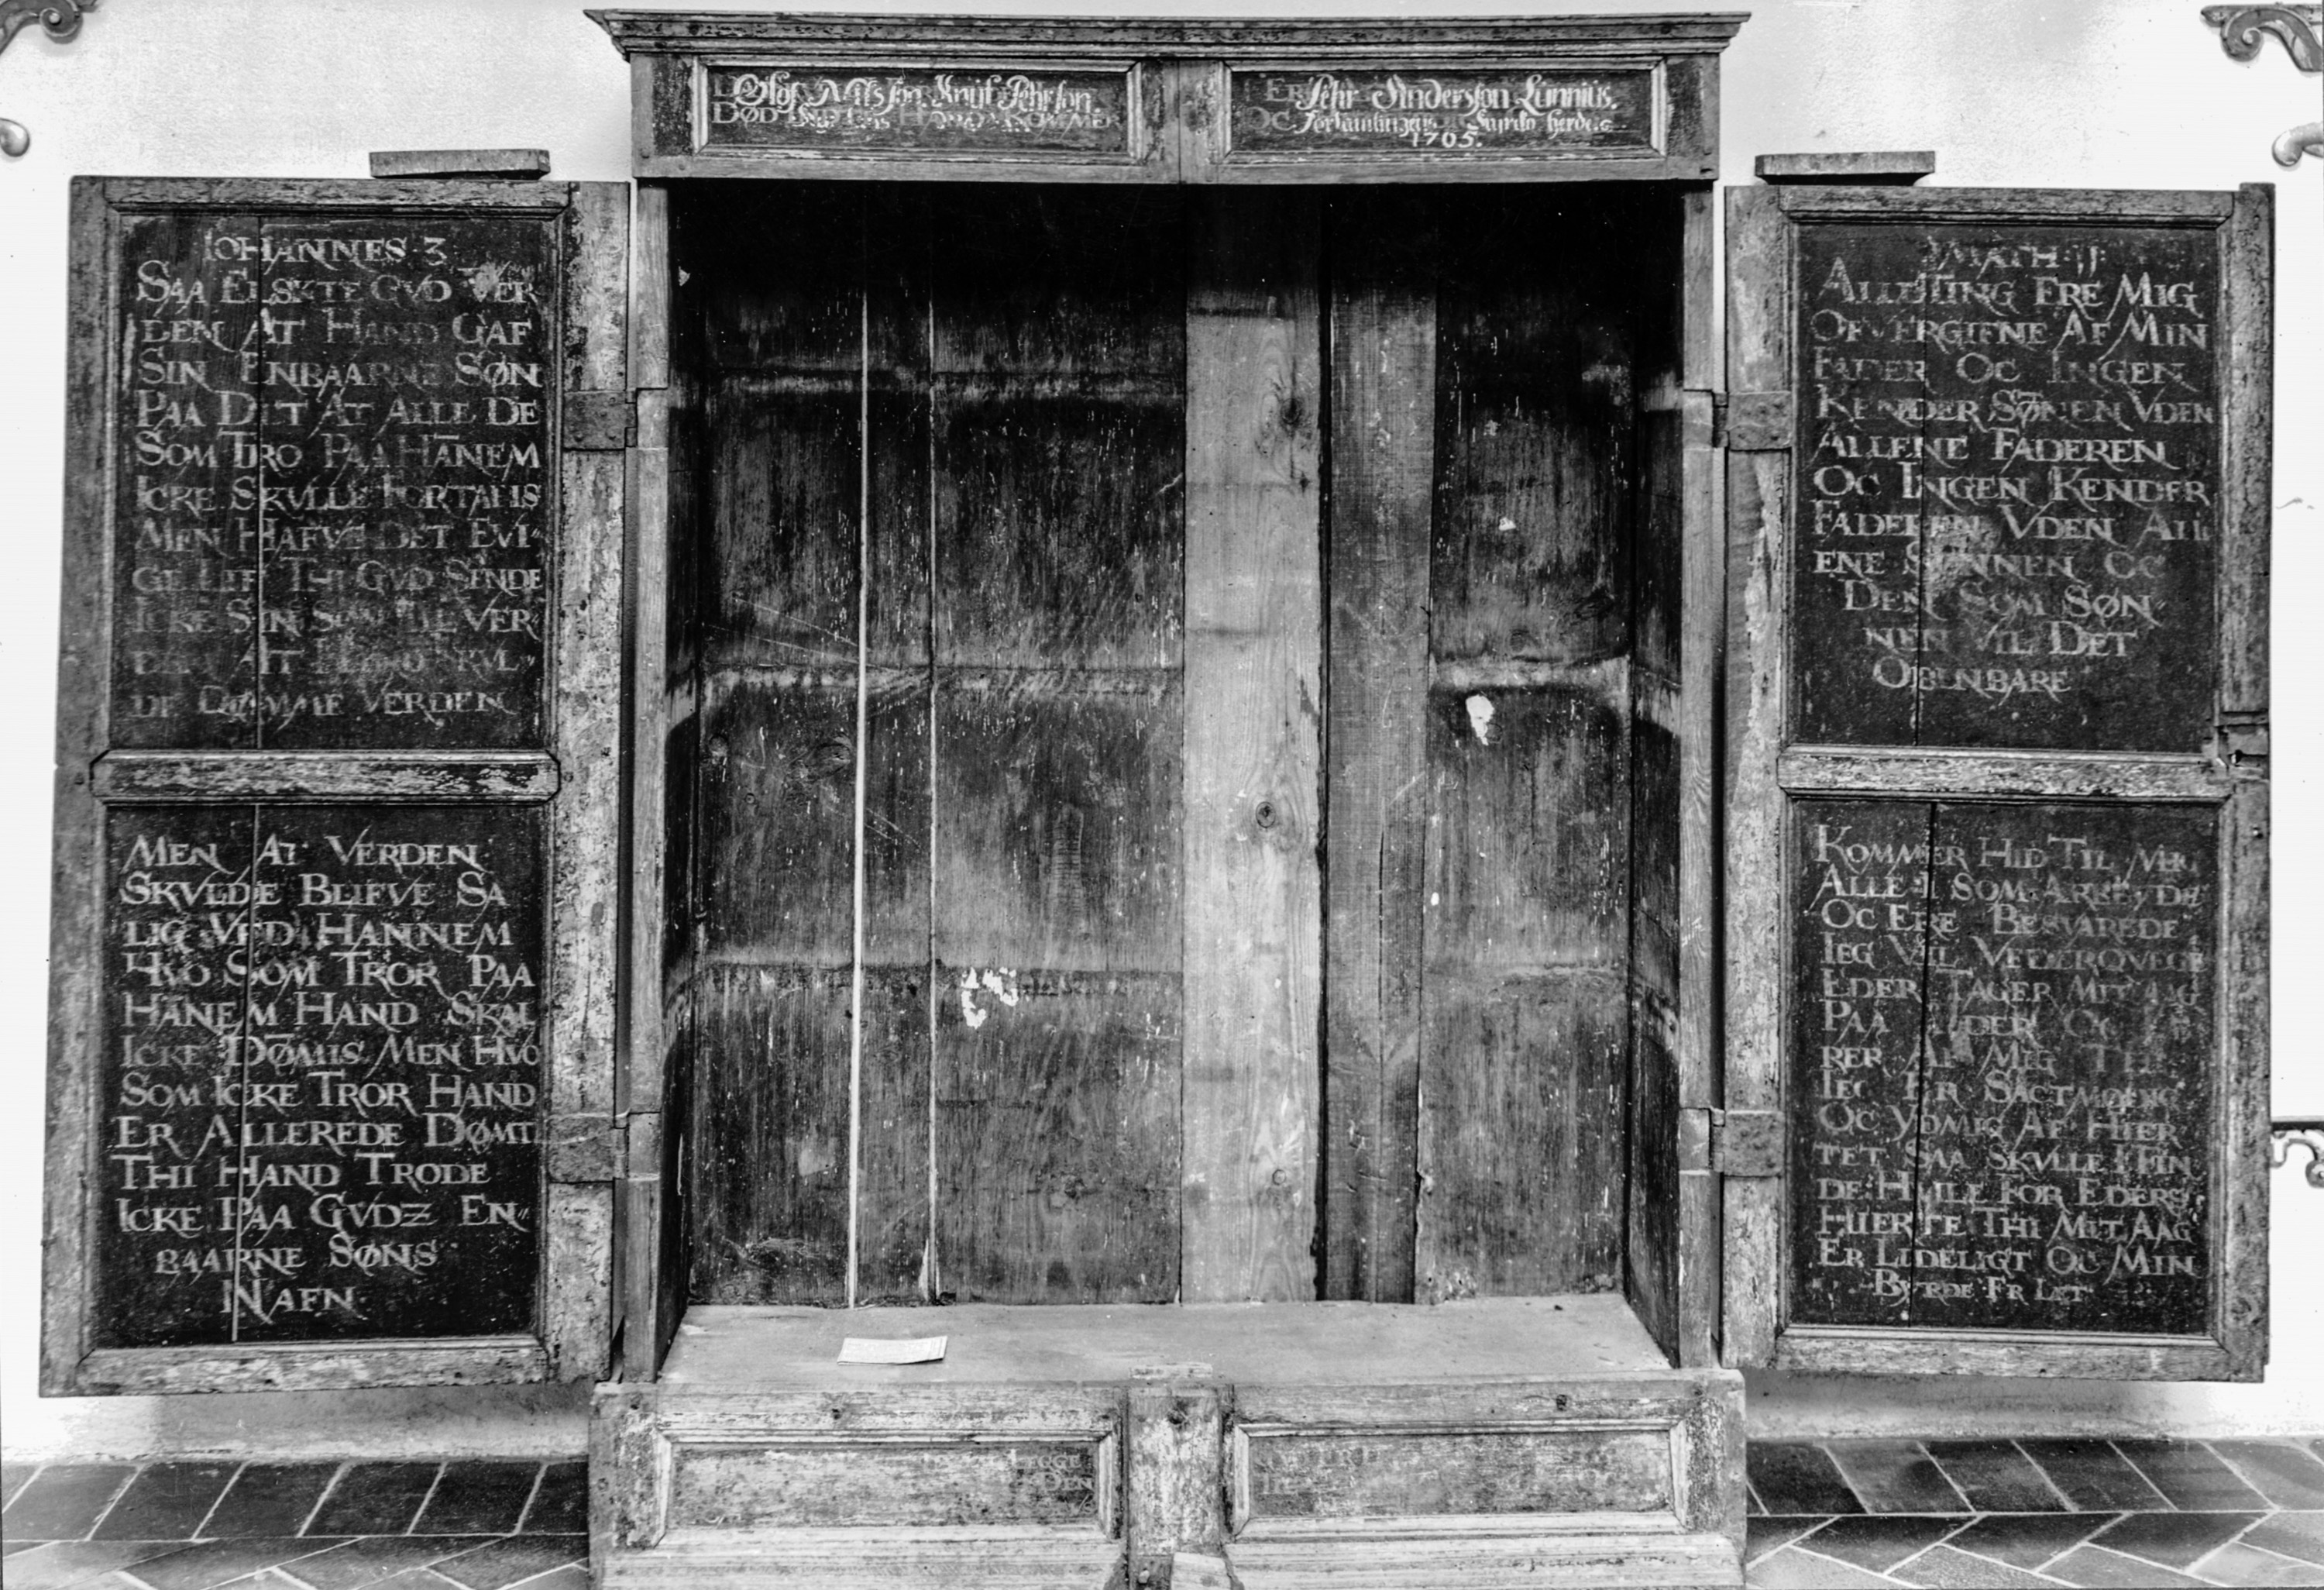 Olof Nilsson. Knut Pehrson.
DØD HAND KOMMER
Pehr Anderson Lunnius.
OC
1705.
IOHANNES 3
SAA ELSKTE GVD VER
DEN AT HAND GAF
SIN ENBAARNE SØN
PAA DET AT ALLE DE
SOM TRO PAA HAN̄EM
ICKE SKVLLE FORTABIS
MEN HAFVE DET EVI-
GE LIF THI GVD SENDE
ICKE SIN SØN TIL VER-
DEN AT HAND SKVL-
DE DØMME VERDEN
MEN AT VERDEN
SKVLDE BLIFVE SA
LIG VED HANNEM
HVO SOM TROR PAA
HAN̄EM HAND SKAL
ICKE DØMIS MEN HVO
SOM ICKE TROR HAND
ER ALLEREDE DØMT
THI HAND TRODE
ICKE PAA GVDZ EN-
BAARNE SØNS
NAFN
MATH 11
ALLETING ERE MIG
OFVERGIFNE AF MIN
FADER OC INGEN
KENDER SØNEN VDEN
ALLENE FADEREN
OC INGEN KENDER
FADEREN VDEN ALL
ENE SØNNEN OC
DEN SOM SØN-
NEN VIL DET
OBENBARE
KOMMER HID TIL MIG
ALLE I SOM ARBEYDE
OC ERE BESVAREDE
IEG VIL VEDERQVEGE
EDER TAGER MIT AAG
PAA EDER OC
RER AF MIG THI
IEG ER SACTMODIG
OC YDMIG AF HIER
TET SAA SKVLLE I FIN
DE HVILE FOR EDERS
HIERTE THI MIT AAG
ER LIDELIGT OC MIN
BYRDE ER LAT
LEGGE
DIN